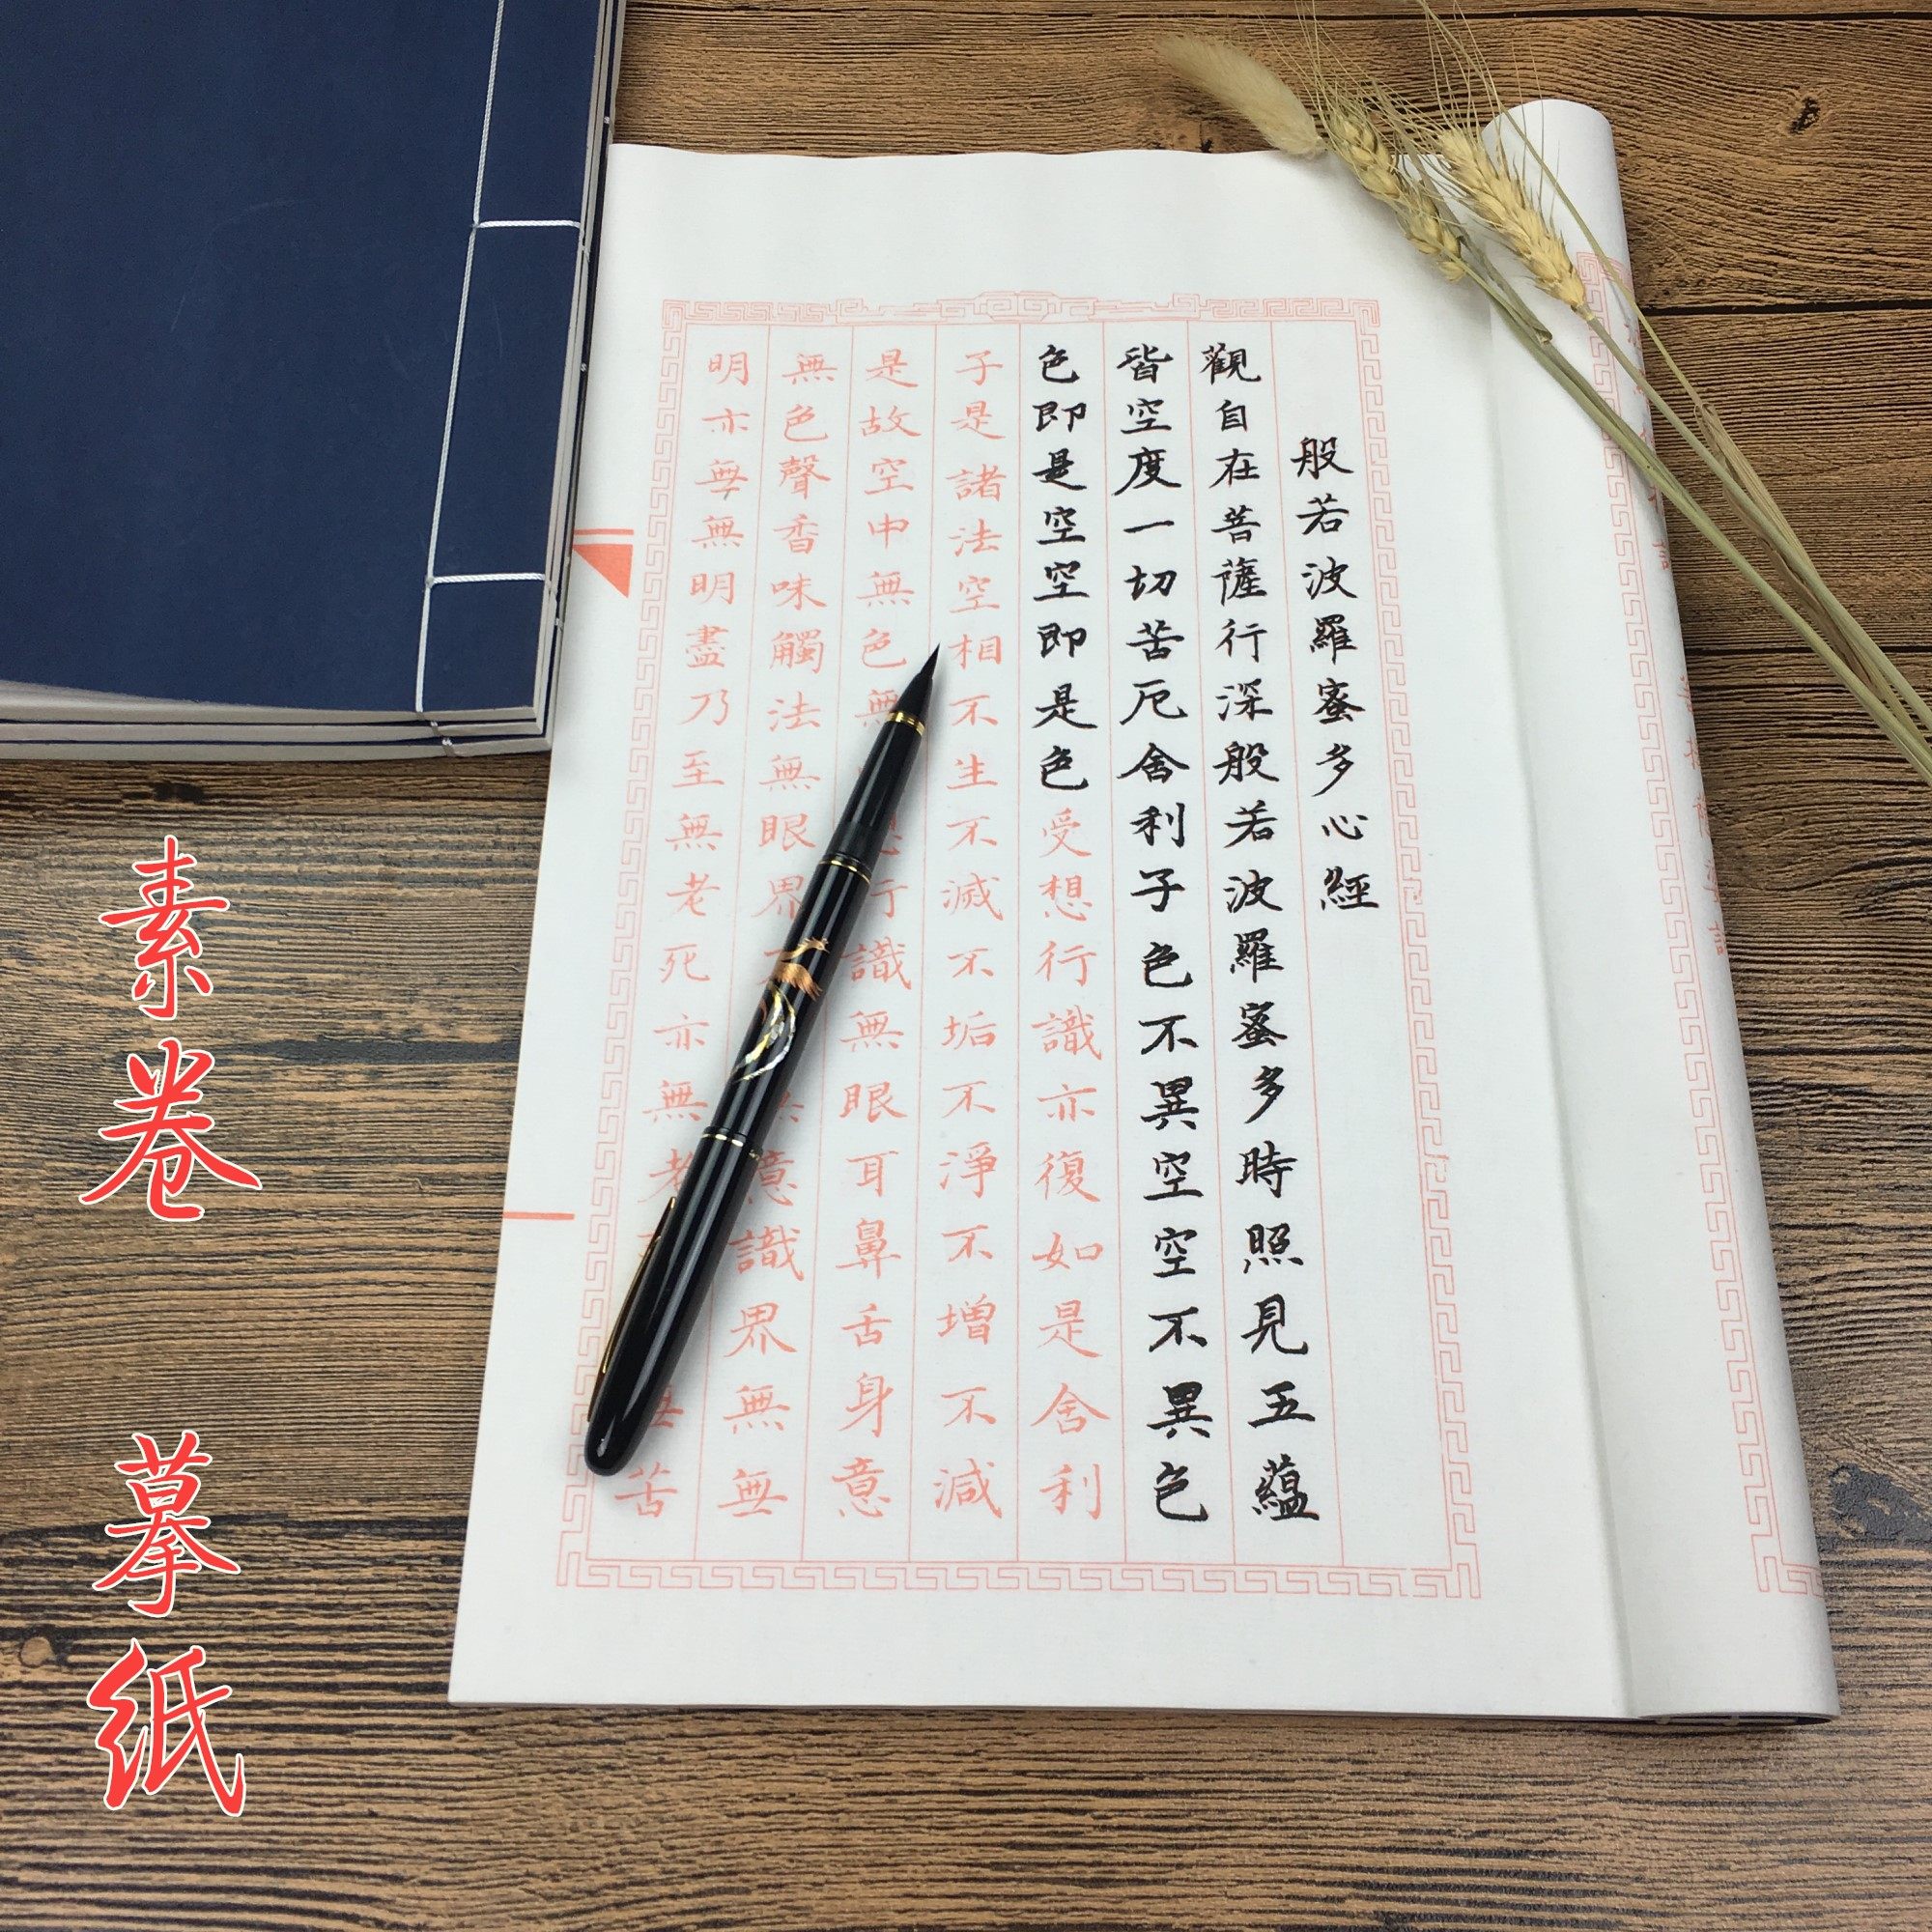 般若波羅蜜多心經
觀自在菩薩行深般若波羅蜜多時照見五蘊
皆空度一切苦厄舍利子色不異空空不異色
色即是空空即是色受想行識亦復如是舍利
子是諸法空相不生不滅不垢不淨不增不減
是故空中無色無行識無眼耳鼻舌身意
無色聲香味觸法無眼界意識界無無
明亦無無明盡乃至無老死亦無老無苦
素卷 摹纸